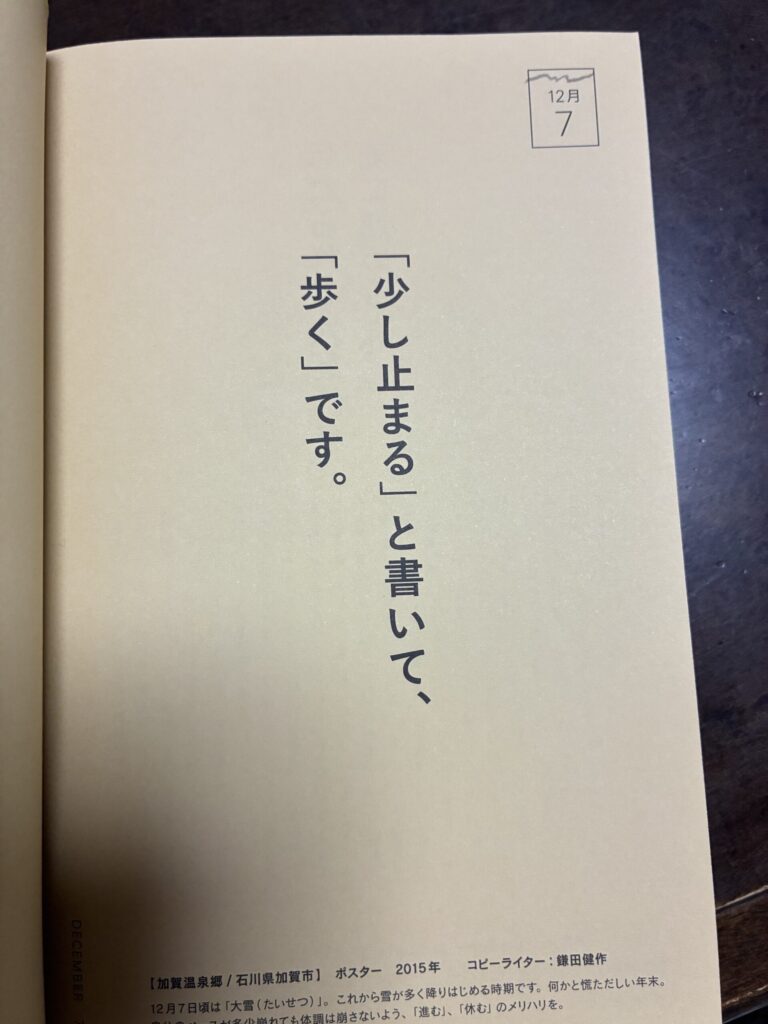 12月
7
「少し止まる」と書いて、
「歩く」です。
【加賀温泉郷/石川県加賀市】 ポスター 2015年 コピーライター:鎌田健作
12月7日頃は「大雪(たいせつ)」。これから雪が多く降りはじめる時期です。何かと慌ただしい年末。
多少崩れても体調は崩さないよう、「進む」、「休む」のメリハリを。
DECEMBER